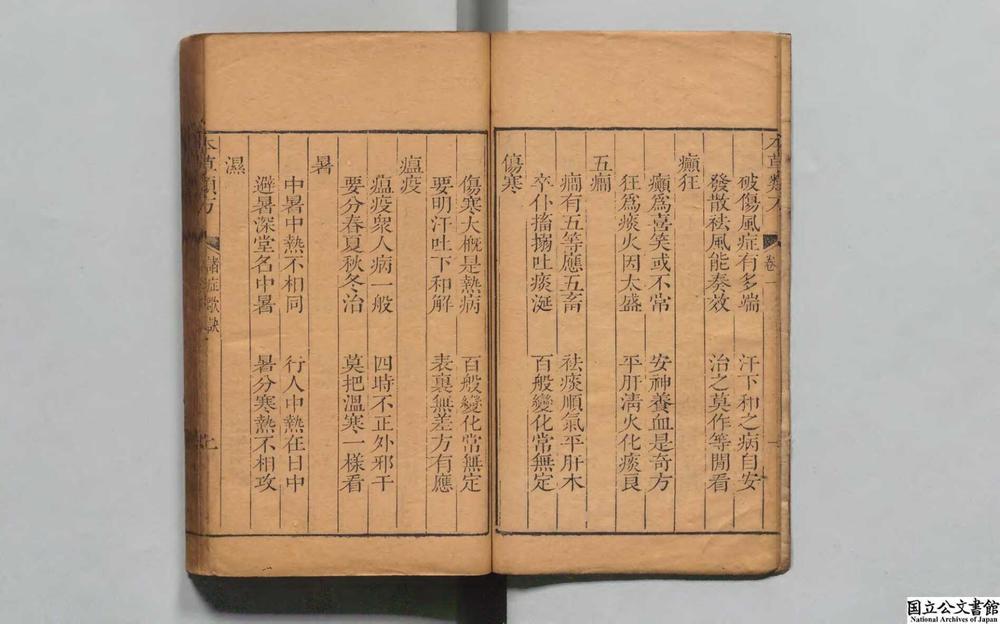 本草類方
卷一
破傷風症有多端　汗下和之病自安
發散祛風能奏效　治之莫作等閒看
癲狂
癲爲喜笑或不常　安神養血是奇方
狂爲痰火因太盛　平肝清火化痰良
五癎
癎有五等應五畜　祛痰順氣平肝木
卒仆搐搦吐痰涎　百般變化常無定
傷寒
傷寒大槪是熱病　百般變化常無定
要明汗吐下和解　表裏無差方有應
瘟疫
瘟疫衆人病一般　四時不正外邪干
要分春夏秋冬治　莫把溫寒一樣看
暑
中暑中熱不相同　行人中熱在日中
避暑深堂名中暑　暑分寒熱不相攻
濕
本草類方
諸症歌訣
国立公文書館
National Archives of Japan